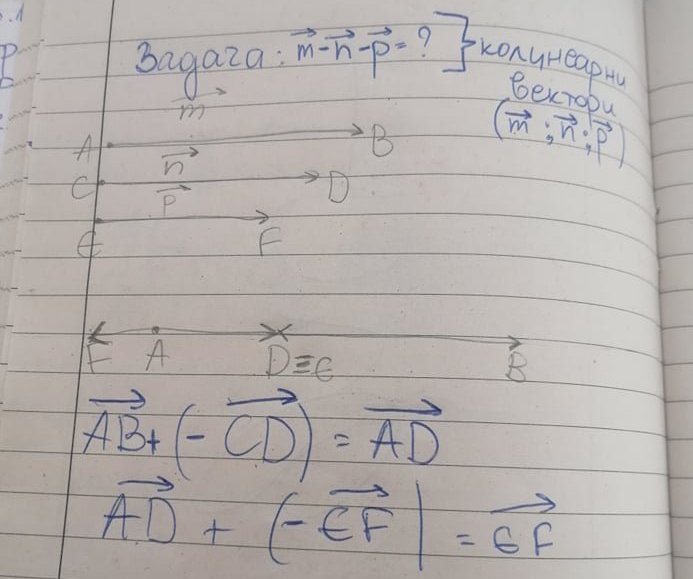 Задача: m⃗-n⃗-p⃗=? } колинеарни
вектори
(m⃗;n⃗;p⃗)
m⃗
A B
n⃗
C D
p⃗
E F
F A D≡E B
A͞B⃗+(-C͞D⃗)=A͞D⃗
A͞D⃗+(-E͞F⃗|=E͞F⃗